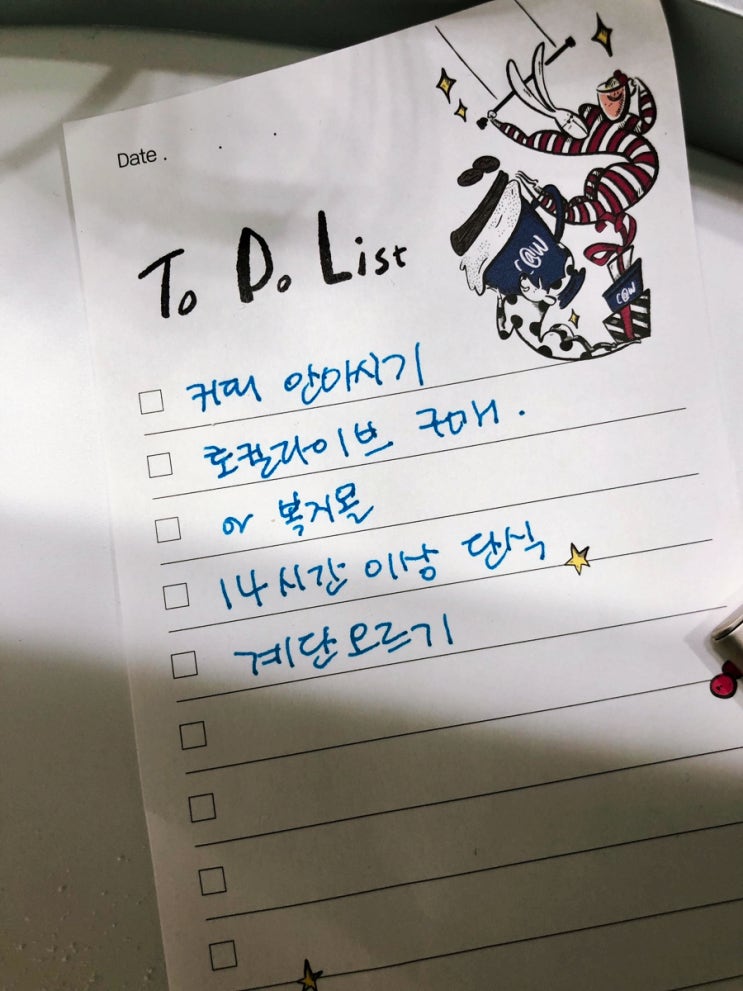 Date . . .
To Do List
C@W
C@W
커피 안마시기
로컬라이브 구매 .
or 복지몰
14시간 이상 단식
계단오르기